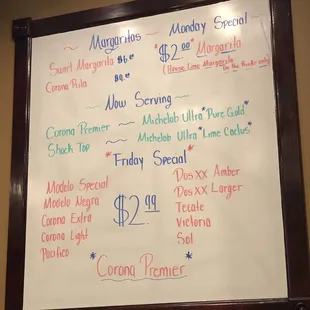 ~ Margaritas ~
Swirl Margarita $6.00
Corona Rita $9.00
Monday Special
*$2.00 Margarita*
(House Lime Margarita
On the Rocks only)
~ Now Serving ~
Corona Premier ~ Michelob Ultra *Pure Gold*
Shock Top ~ Michelob Ultra *Lime Cactus*
*Friday Special*
Modelo Special
Modelo Negra
Corona Extra
Corona Light
Pacifico
$2.99
Dos XX Amber
Dos XX Larger
Tecate
Victoria
Sol
*Corona Premier*